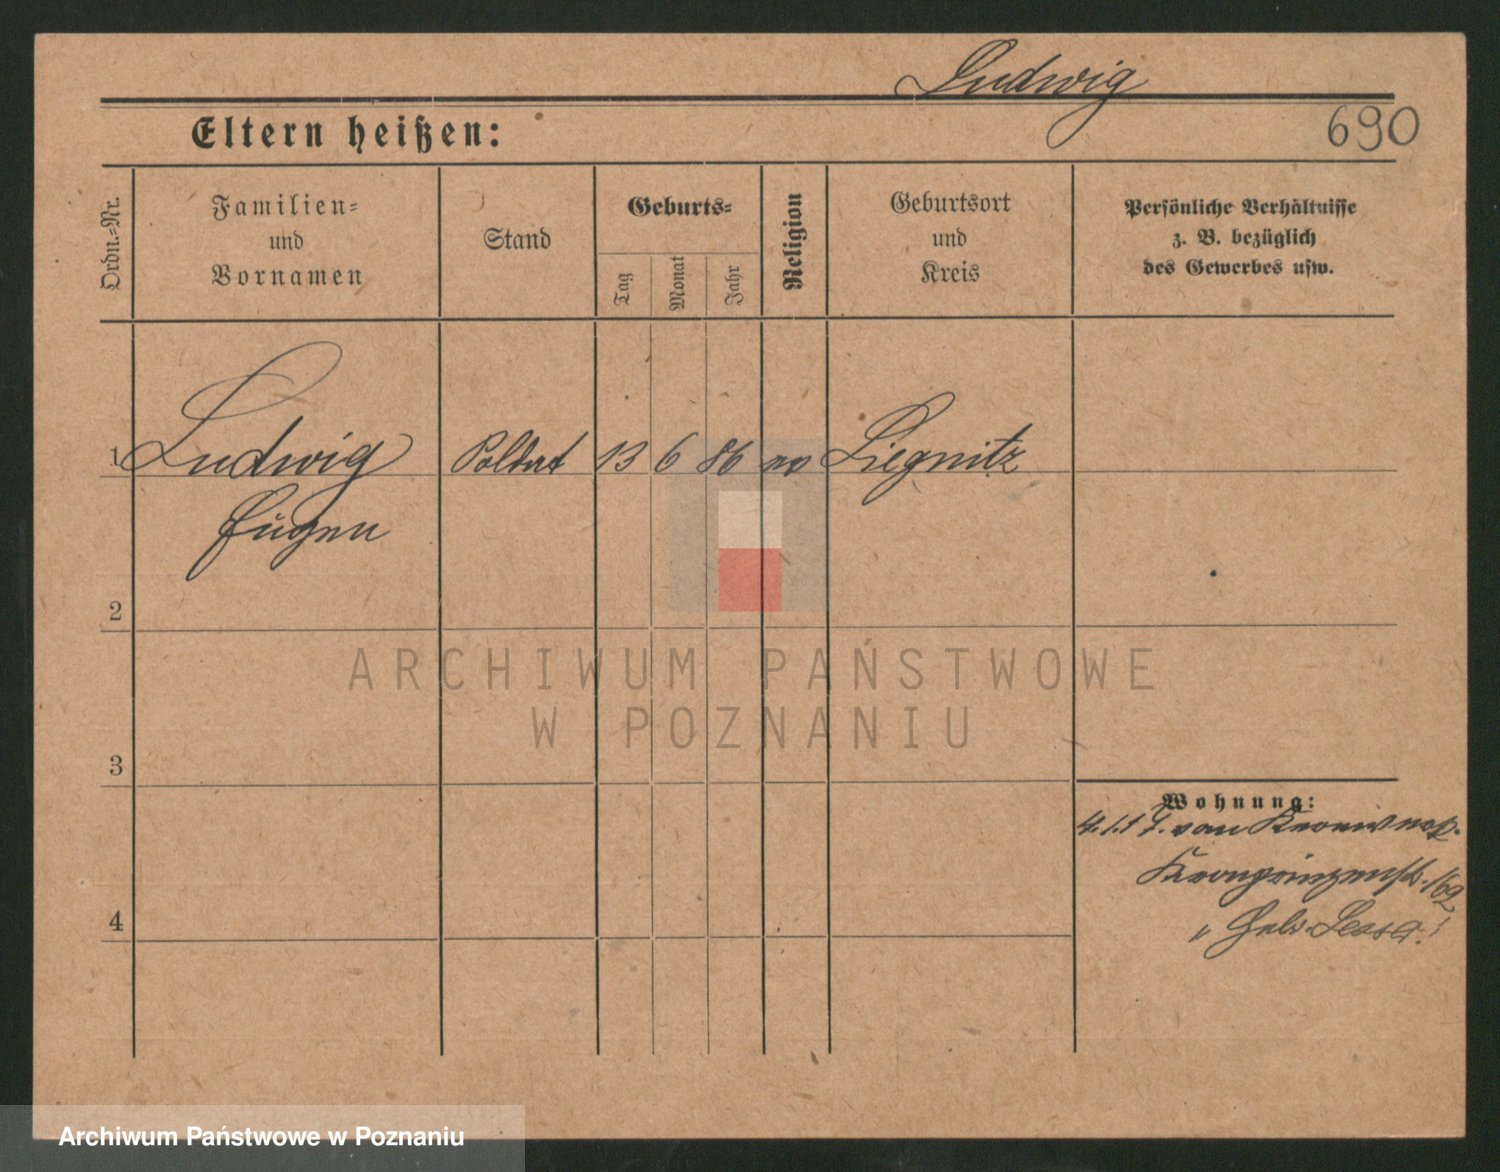 Ludwig
690
Eltern heißen:
Ordn.-Nr.
Familien-
und
Vornamen
Stand
Geburts-
Tag
Monat
Jahr
Religion
Geburtsort
und
Kreis
Persönliche Verhältnisse
z. B. bezüglich
des Gewerbes usw.
1 Ludwig Soldat 13 6 86 Liegnitz
Eugen
2
3
4
Wohnung:
4.1.17. von
Kronprinzenstr. 162
ARCHIWUM PAŃSTWOWE
W POZNANIU
Archiwum Państwowe w Poznaniu